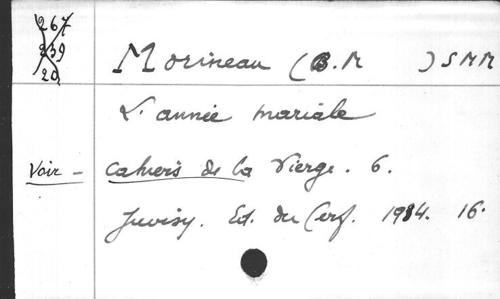 267
239
20
Morineau (B.M ) SMM
L'année mariale
Voir - Cahiers de la Vierge. 6.
Juvisy. Ed. du Cerf. 1934. 16.